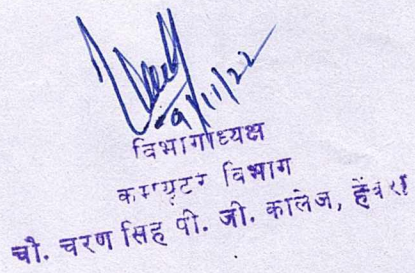 9/11/22
विभागाध्यक्ष
कम्प्यूटर विभाग
चौ. चरण सिंह पी. जी. कालेज, हेंवरा